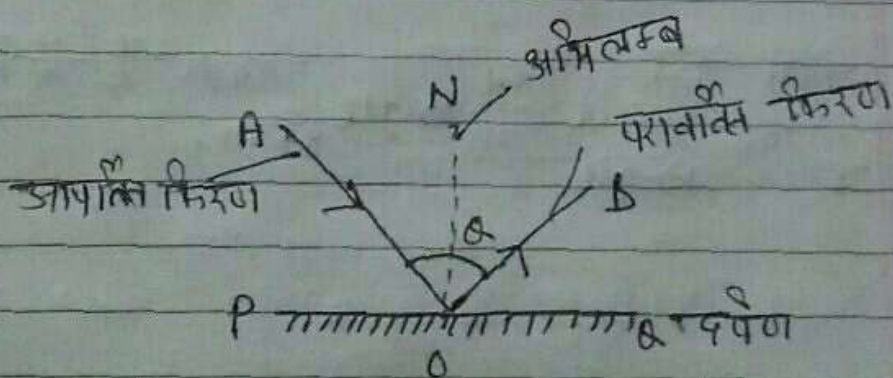 अभिलम्ब
N
A
परावर्तित किरण
आपतित किरण
B
Q
P
Q दर्पण
O